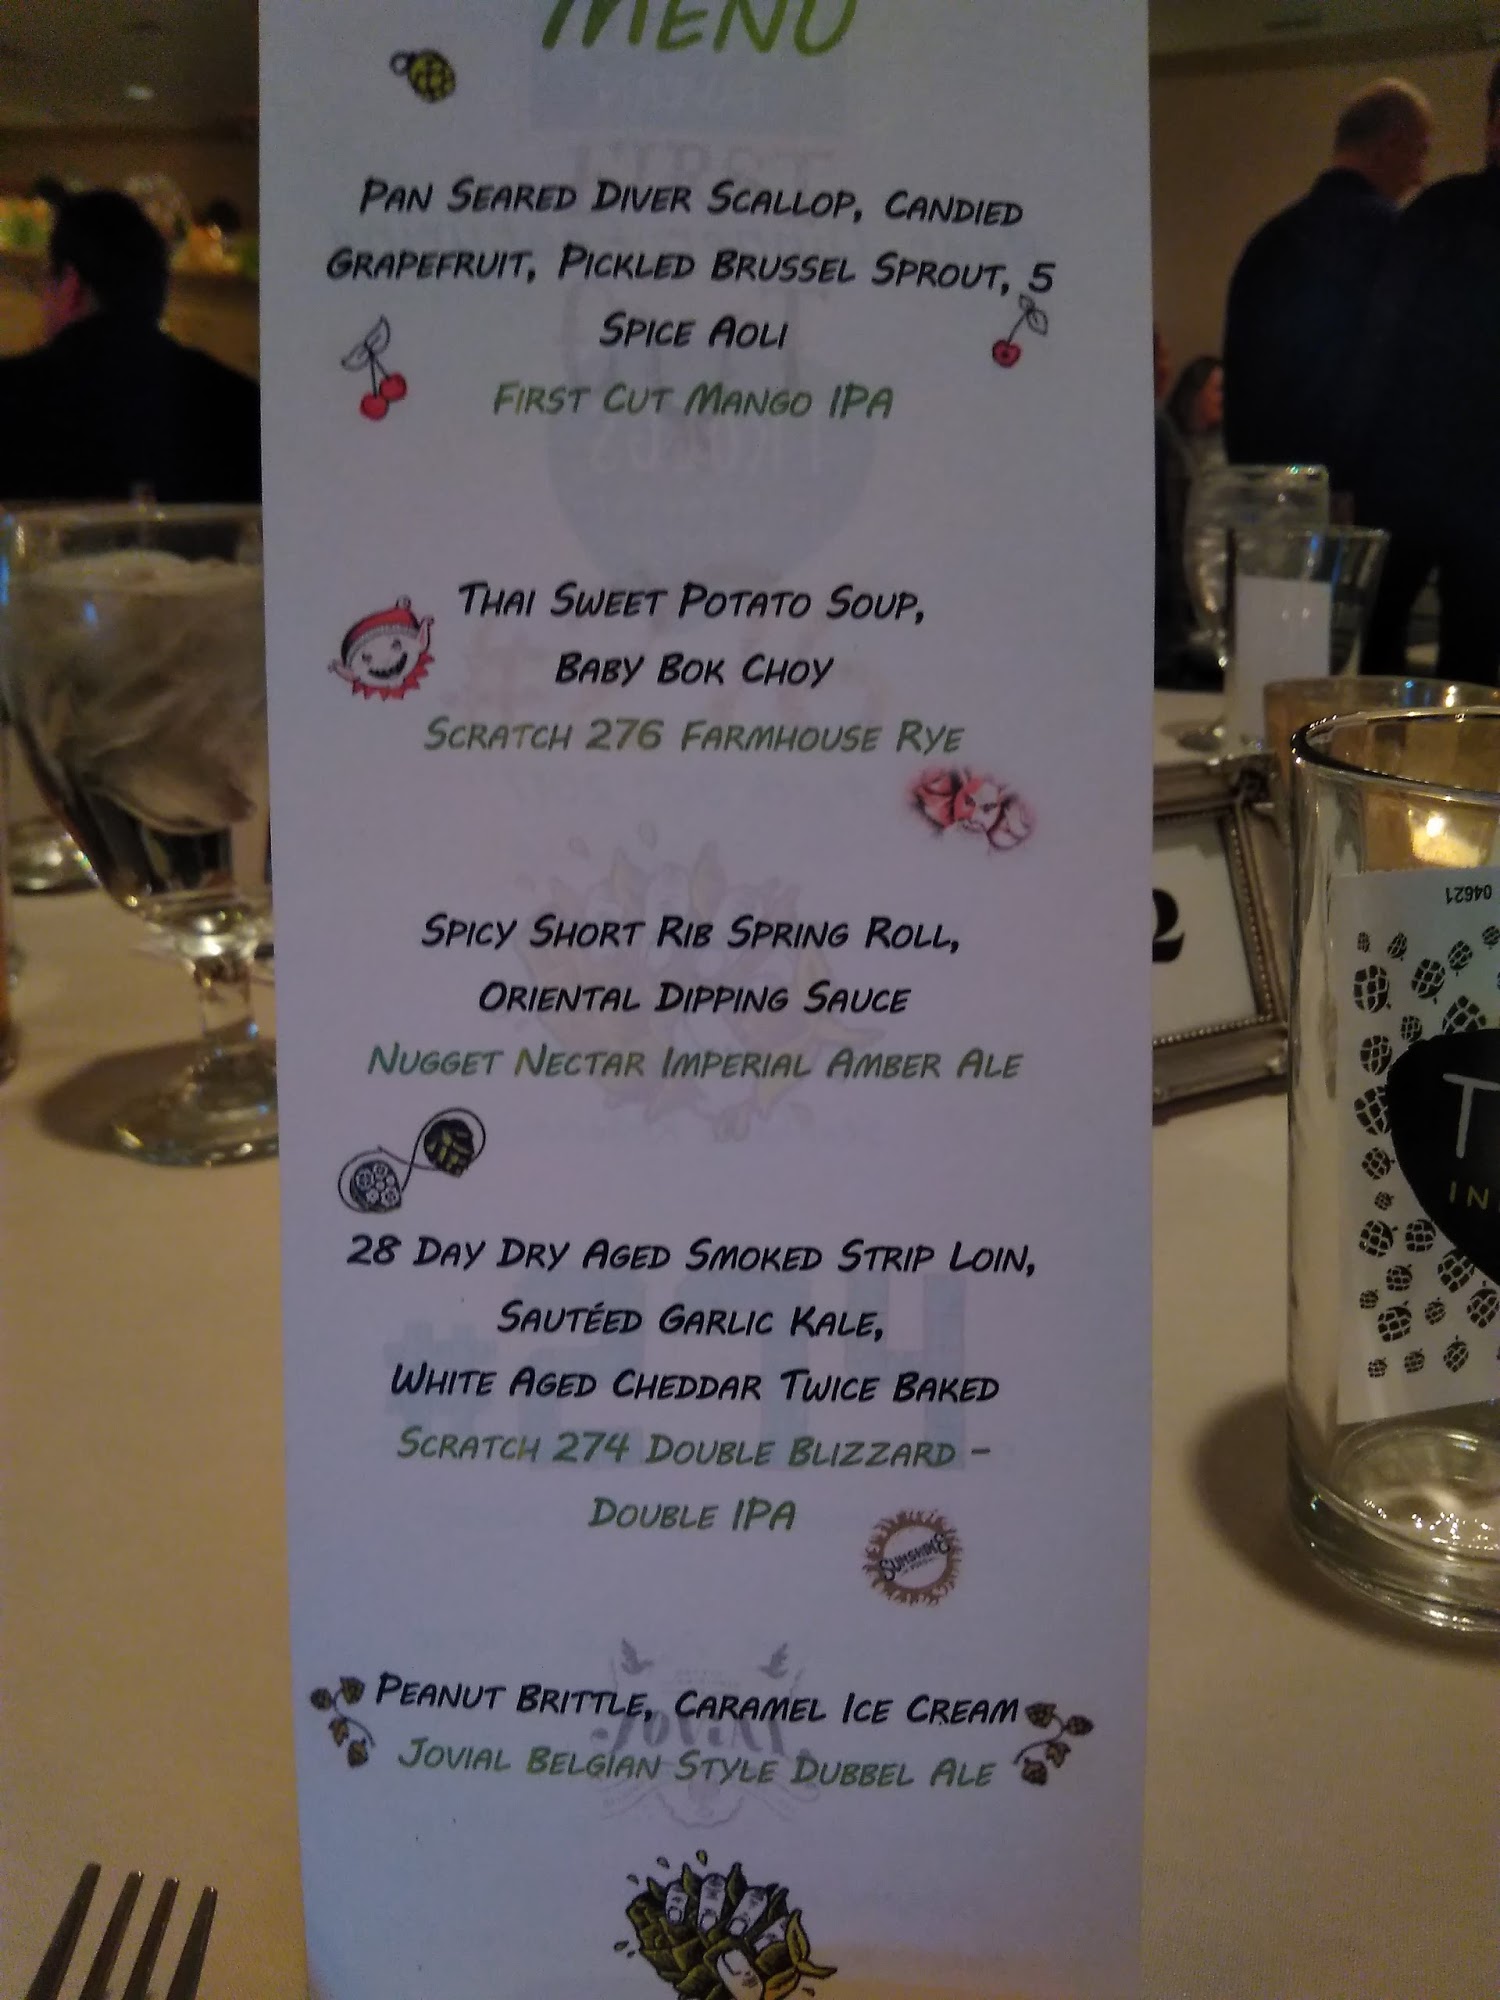 MENU
PAN SEARED DIVER SCALLOP, CANDIED
GRAPEFRUIT, PICKLED BRUSSEL SPROUT, 5
SPICE AOLI
FIRST CUT MANGO IPA
THAI SWEET POTATO SOUP,
BABY BOK CHOY
SCRATCH 276 FARMHOUSE RYE
SPICY SHORT RIB SPRING ROLL,
ORIENTAL DIPPING SAUCE
NUGGET NECTAR IMPERIAL AMBER ALE
28 DAY DRY AGED SMOKED STRIP LOIN,
SAUTÉED GARLIC KALE,
WHITE AGED CHEDDAR TWICE BAKED
SCRATCH 274 DOUBLE BLIZZARD -
DOUBLE IPA
SUNSHINE
PEANUT BRITTLE, CARAMEL ICE CREAM
JOVIAL BELGIAN STYLE DUBBEL ALE
2
04621
T
IN